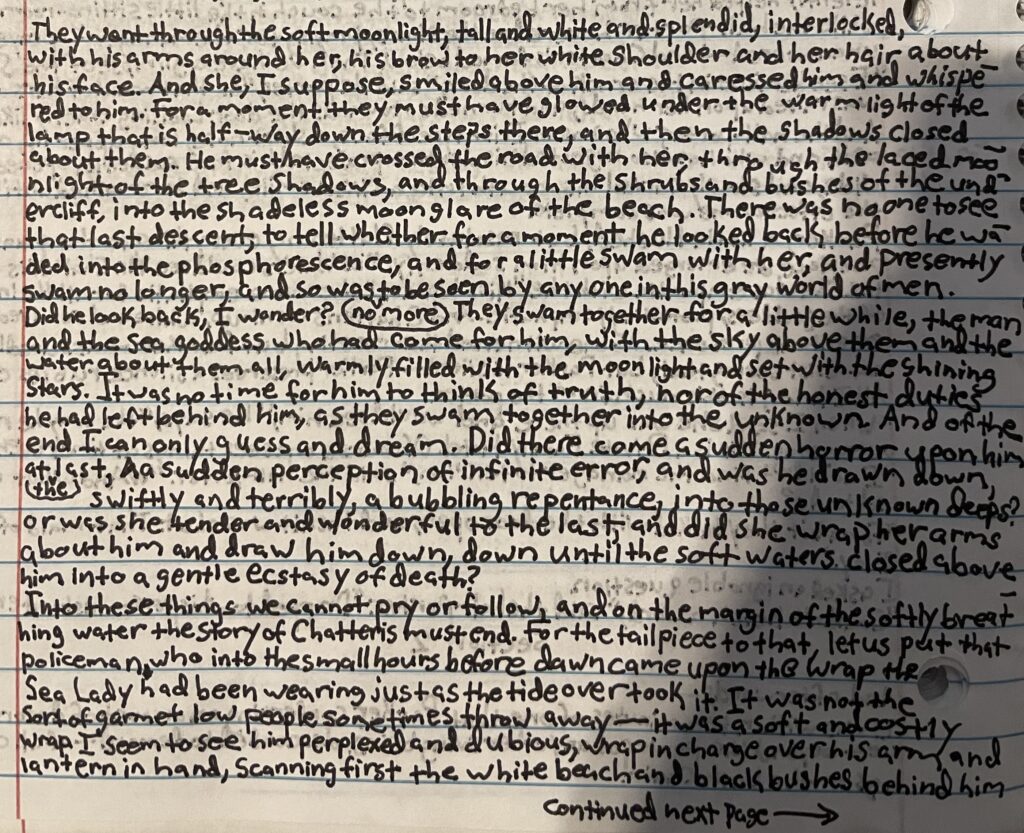 They want through the soft moonlight, tall and white and splendid, interlocked,
with his arms around her, his brow to her white shoulder and her hair about
his face. And she, I suppose, smiled above him and caressed him and whispe-
red to him. For a moment they must have glowed under the warm light of the
lamp that is half-way down the steps there, and then the shadows closed
about them. He must have crossed the road with her, through the laced moo-
nlight of the tree shadows, and through the shrubs and bushes of the und-
ercliff, into the shadeless moon glare of the beach. There was no one to see
that last descent, to tell whether for a moment he looked back before he wa-
ded into the phosphorescence, and for a little swam with her, and presently
swam no longer, and so was to be seen by any one in this gray world of men.
Did he look back, I wonder? (no more) They swam together for a little while, the man
and the sea goddess who had come for him, with the sky above them and the
water about them all, warmly filled with the moonlight and set with the shining
stars. It was no time for him to think of truth, nor of the honest duties
he had left behind him, as they swam together into the unknown. And of the
end I can only guess and dream. Did there come a sudden horror upon him
at last, a sudden perception of infinite error, and was he drawn down,
(the) swiftly and terribly, a bubbling repentance, into those unknown deeps?
or was she tender and wonderful to the last, and did she wrap her arms
about him and draw him down, down until the soft waters closed above
him into a gentle ecstasy of death?
Into these things we cannot pry or follow, and on the margin of the softly breat-
hing water the story of Chatteris must end. For the tailpiece to that, let us put that
policeman, who into the small hours before dawn came upon the wrap the
Sea Lady had been wearing just as the tide overtook it. It was not the
sort of garmet low people sometimes throw away — it was a soft and costly
wrap. I seem to see him perplexed and dubious, wrap in charge over his arm, and
lantern in hand, scanning first the white beach and black bushes behind him
Continued next page →